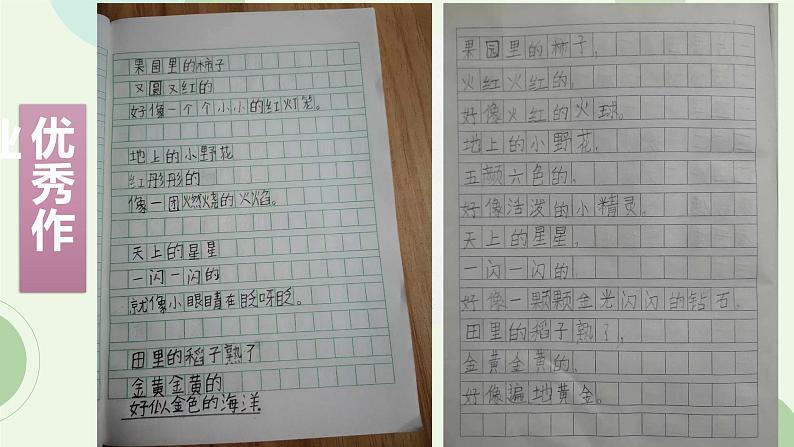 优秀作
业
果园里的柿子
又圆又红的
好像一个个小小的红灯笼。
地上的小野花
红彤彤的
像一团燃烧的火焰。
天上的星星
一闪一闪的
就像小眼睛在眨呀眨。
田里的稻子熟了
金黄金黄的
好似金色的海洋.
果园里的柿子，
火红火红的，
好像火红的火球。
地上的小野花，
五颜六色的，
好像活泼的小精灵。
天上的星星，
一闪一闪的
好像一颗颗金光闪闪的钻石。
田里的稻子熟了，
金黄金黄的，
好像遍地黄金。